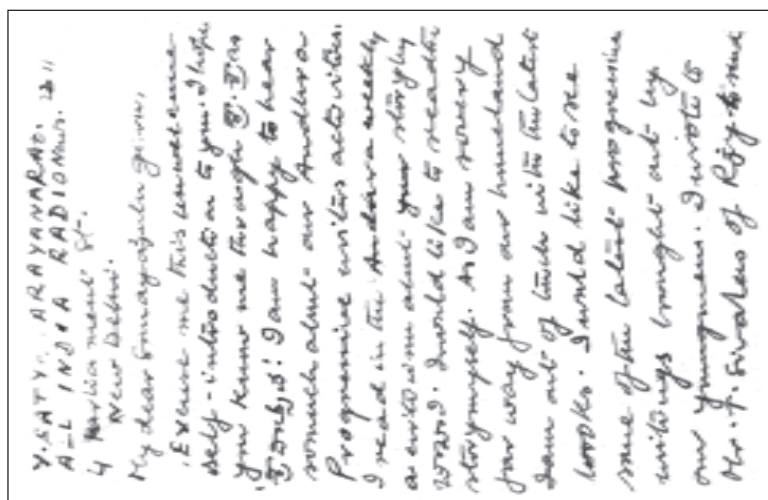 Y. SATYANARAYANARAO.
ALL INDIA RADIO News.
4 Parliament St.
New Delhi.
My dear
Excuse me this
self-introduction to you. I hope
you know me through
I am happy to hear
so much about our Andhra
Progressive writers activities.
I read in the Andhra weekly
a criticism about your story by
I would like to read the
story myself. As I am
far way from our homeland
I am out of touch with the latest
books. I would like to see
some of the latest progressive
writings brought out by
our youngmen. I wrote to
Mr. of Rjy to send